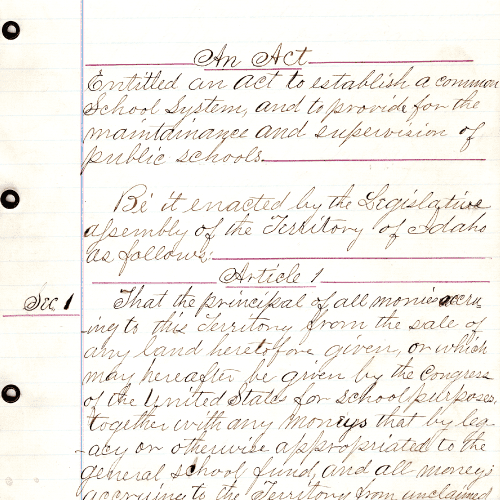 An Act
Entitled an act to establish a common
School System, and to provide for the
maintainance and supervision of
public schools.
Be it enacted by the Legislative
assembly of the Territory of Idaho
as follows:
Article 1
Sec 1 That the principal of all monies accru-
ing to this Territory from the sale of
any land heretofore given, or which
may hereafter be given by the Congress
of the United States for school purposes,
together with any moneys that by leg-
acy or otherwise appropriated to the
general school fund, and all moneys
accruing to the Territory from unclaimed